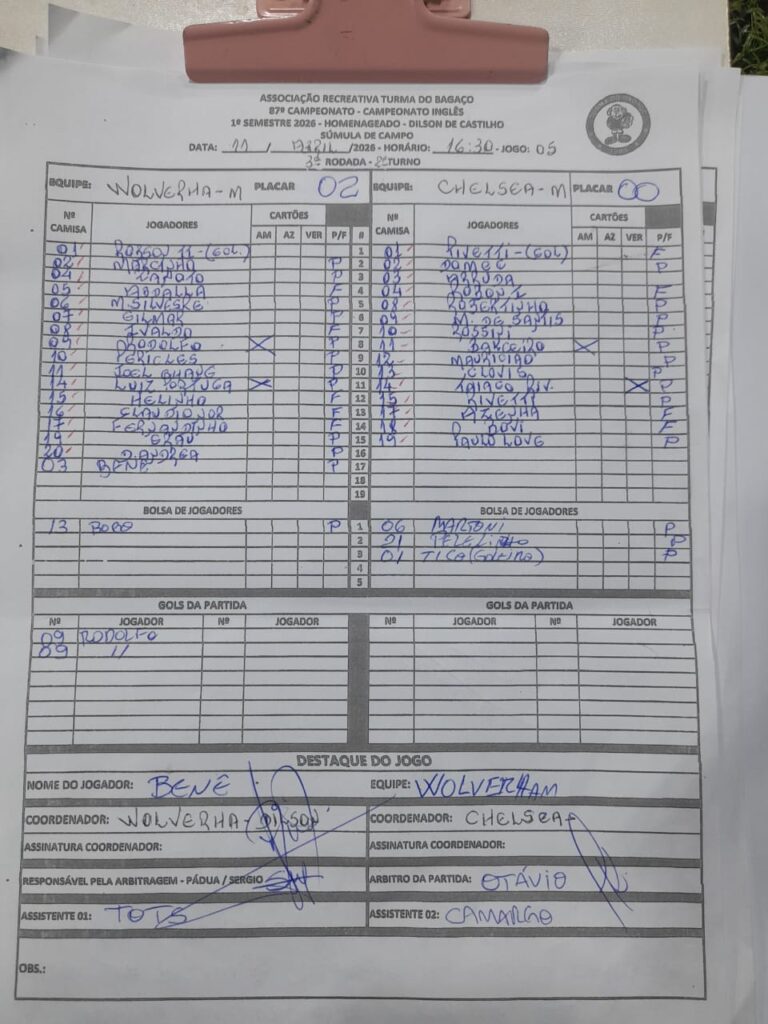 ASSOCIAÇÃO RECREATIVA TURMA DO BAGAÇO
87º CAMPEONATO - CAMPEONATO INGLÊS
1º SEMESTRE 2026 - HOMENAGEADO - DILSON DE CASTILHO
SÚMULA DE CAMPO
DATA: 11 / ABRIL /2026 - HORÁRIO: 16:30 - JOGO: 05
3ª RODADA - 2º TURNO
EQUIPE: WOLVERHA-M PLACAR 02 EQUIPE: CHELSEA-M PLACAR 00
Nº CAMISA JOGADORES CARTÕES P/F # Nº CAMISA JOGADORES CARTÕES P/F
AM AZ VER AM AZ VER
01 ROBSON 11-(GOL) 1 01 RIVETTI-(GOL) F
02 MARCINHO P 2 02 DOMEC P
04 P 3 03 ARRUDA
05 ABDALLA F 4 04 F
06 M. SILVESKE P 5 08 ROBERTINHO P
07 GILMAR F 6 09 M. DE SANTIS P
08 IVALDO F 7 10 ROSSINI P
09 RODOLFO X P 8 11 X P
10 PERICLES P 9 12 MAURICIÃO P
11 JOEL P 10 13 CLOVIS P
14 LUIZ PORTUGA X P 11 14 TAIAGO RIV. X P
15 HELINHO F 12 15 RIVETTI P
16 CLAUDIONOR F 13 17 AZENHA F
17 FERNANDINHO F 14 18 F
19 GRAU P 15 19 PAULO LOVE P
20 D'ANDREA P 16
03 BENÊ P 17
18
19
BOLSA DE JOGADORES BOLSA DE JOGADORES
13 BORO P 1 06 MARTONI P
2 21 P
3 01 TICA (GOLEIRO) P
4
5
GOLS DA PARTIDA GOLS DA PARTIDA
Nº JOGADOR Nº JOGADOR Nº JOGADOR Nº JOGADOR
09 RODOLFO
09 11
DESTAQUE DO JOGO
NOME DO JOGADOR: BENÊ EQUIPE: WOLVERHAM
COORDENADOR: WOLVERHA- DILSON COORDENADOR: CHELSEA-
ASSINATURA COORDENADOR: ASSINATURA COORDENADOR:
RESPONSÁVEL PELA ARBITRAGEM - PÁDUA / SERGIO ARBITRO DA PARTIDA: OTÁVIO
ASSISTENTE 01: ASSISTENTE 02: CAMARGO
OBS.: